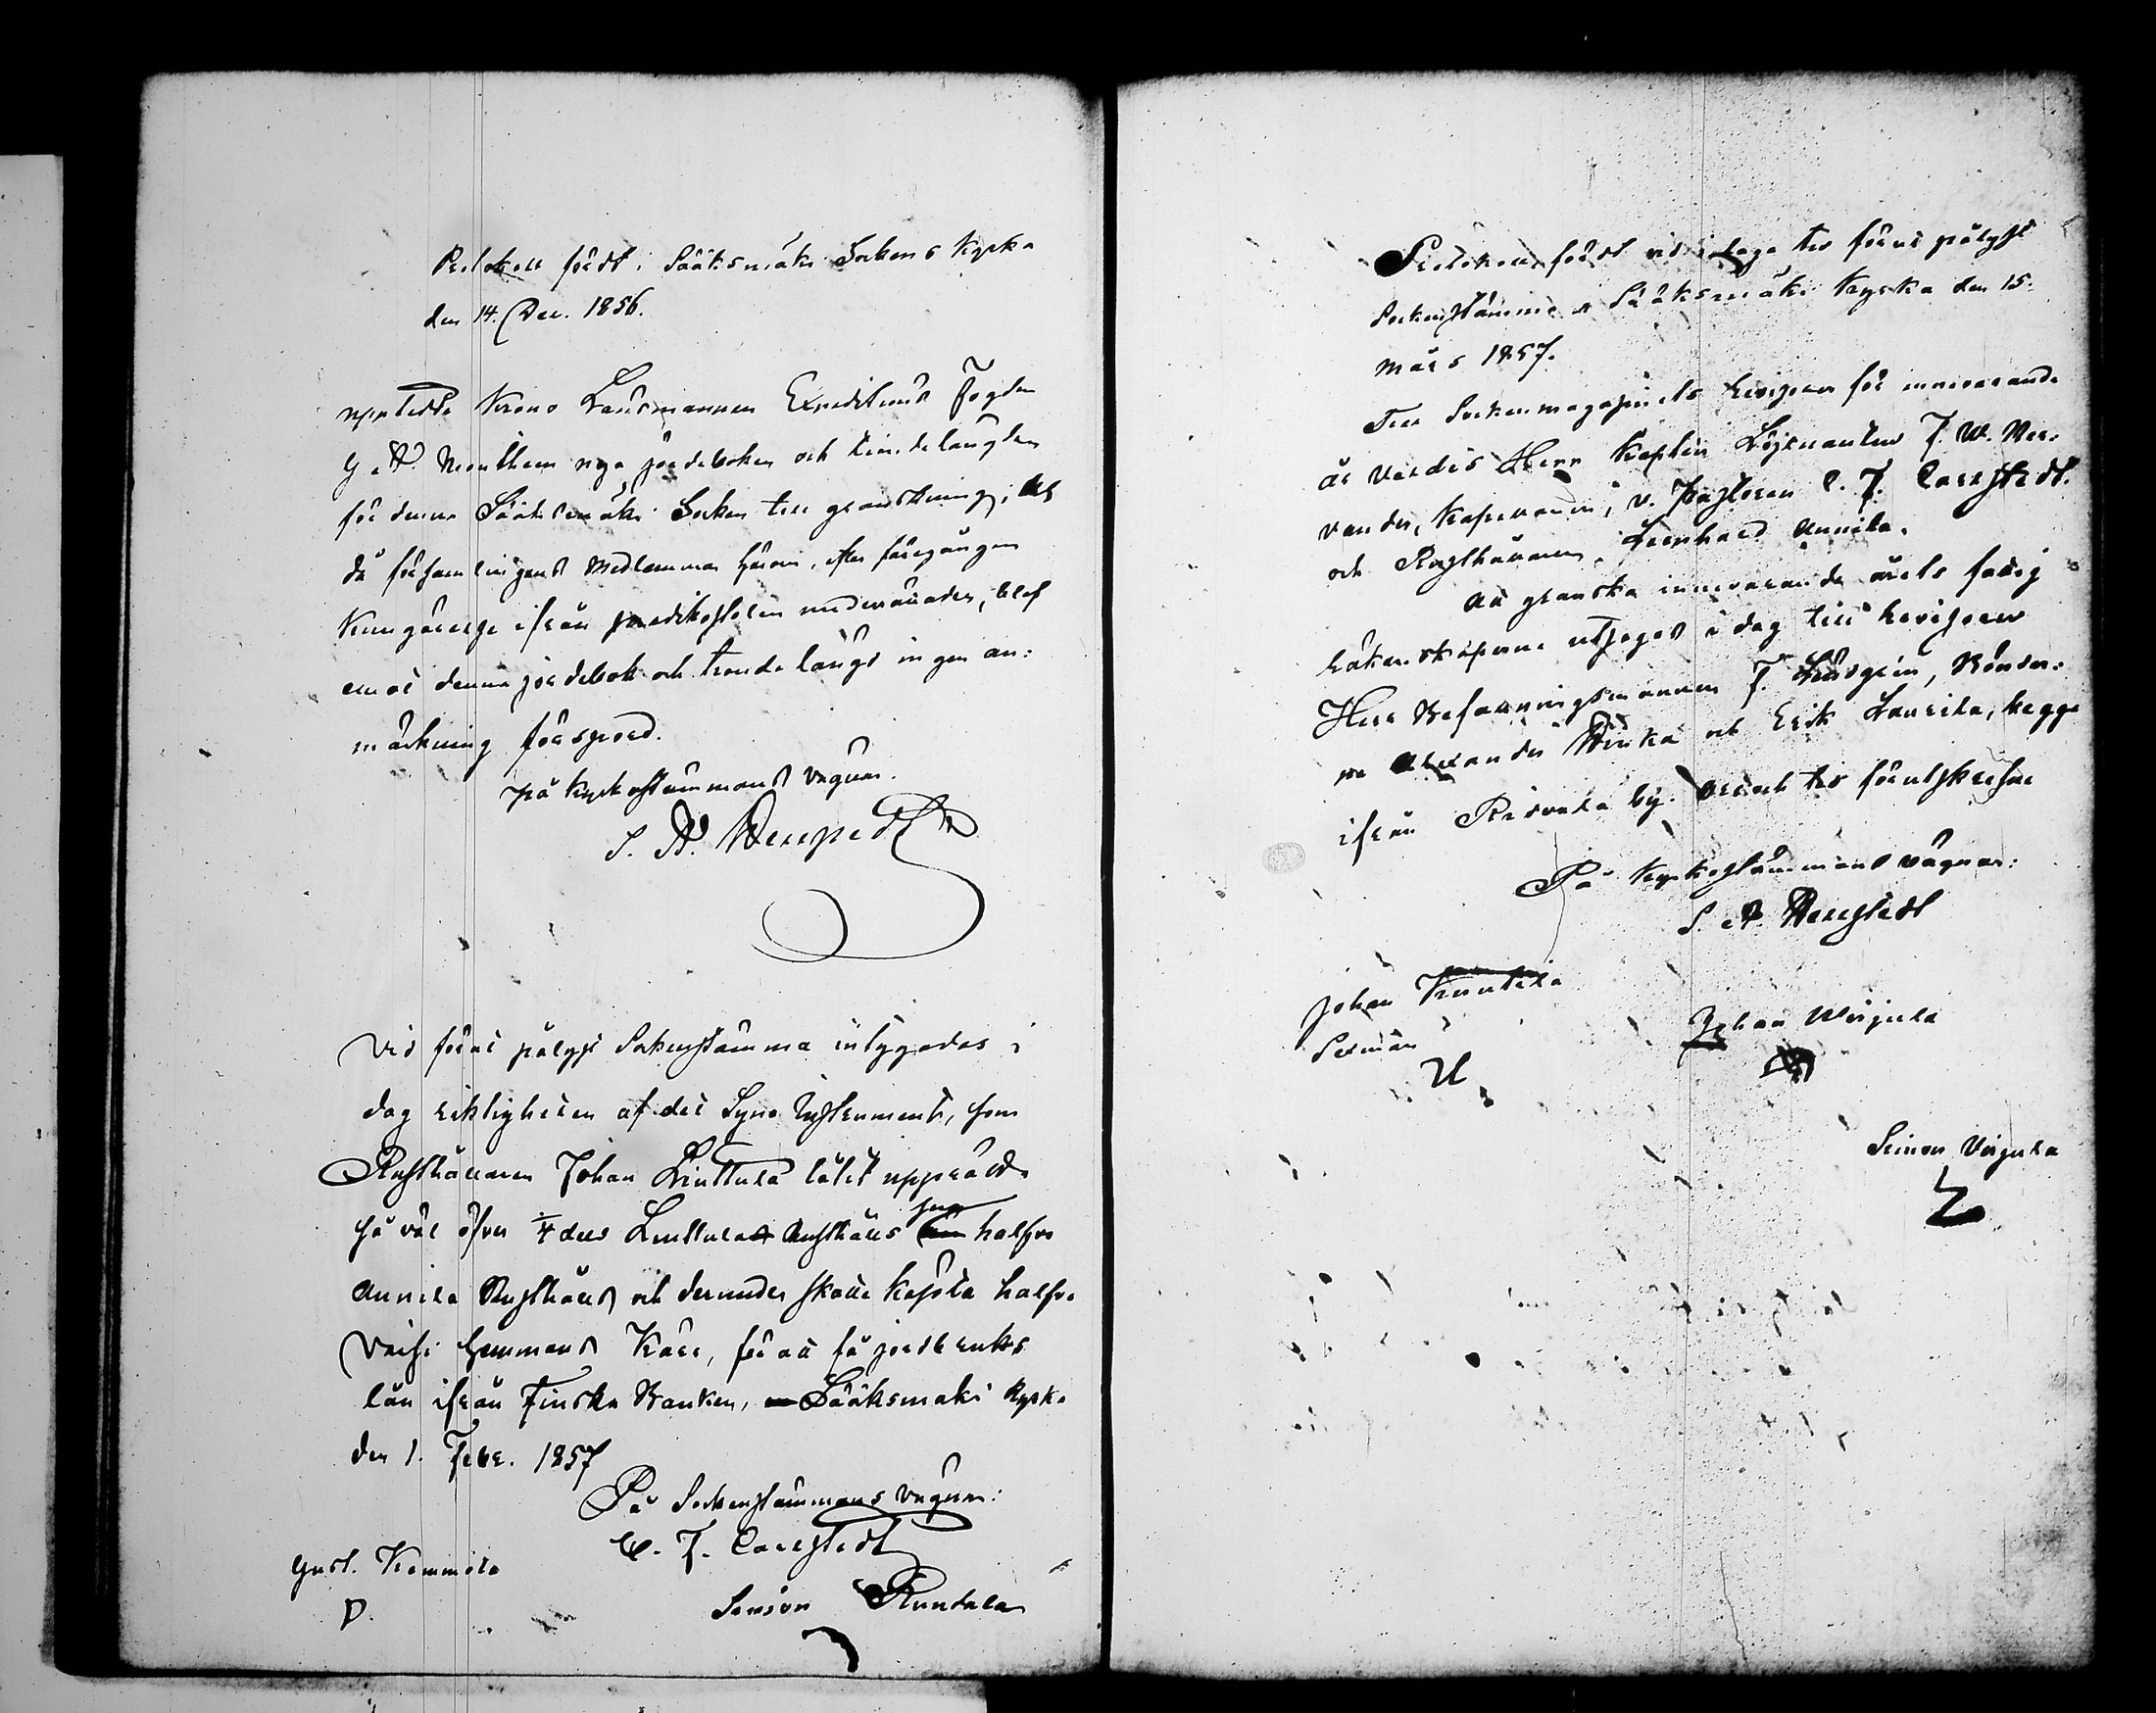 Protokoll fördt i Sääksmäki Sockens Kyrka
den 14. Dec. 1856.
upptedde Krono Länsmannen Expeditions Fogden
G. A. Monthen nya jordeboken och tionde längden
för denna Sääksmäki Socken till granskning, och
då församlingens medlemmar härom, efter föregången
Kungörelse ifrån predikostolen underrättades, blef
emot denna jordebok och tionde längd ingen an:
märkning försport.
på Kyrkostämmans vägnar.
S. A.
Vid förut pålyst Sockenstämma intygades i
dag riktigheten af det Syne Instrument, som
Rusthållaren Johan Liuttula låtit upprätta
så väl öfver 1/4 dels Liuttula Rusthålls halfva
Annila Rusthåll och derunder skatte halfva
hemmans Karr, för att få jordbruks
lån ifrån Finska Banken, Sääksmäki Kyrka
den 1. Febr. 1857
På Sockenstämmans vägnar:
C. F. Carlstedt
Gust. Kemmola
P.
Simon
Protokoll fördt vid i laga tid förut pålyst
Sockenstämma i Sääksmäki Kyrka den 15.
Mars 1857.
Till Sockenmagasinets Revisorer för innevarande
år valdes Herr Kapten Löjtnanten F. W.
Kaplanen, v. Pastoren C. F. Carlstedt.
och Rusthållaren Leonhard Annila.
Att granska innevarande årets fattig
räkenskaperna utsågos i dag till Revisorer
Herr Befallningsmannen F. Bönder:
ne Alexander och Erik Laurila, begge
ifrån Ritvala by. förutskrefne
På Kyrkostämmans vägnar:
S. A.
Johan Knuutila
Johan Uvijula
Simon Uvijula